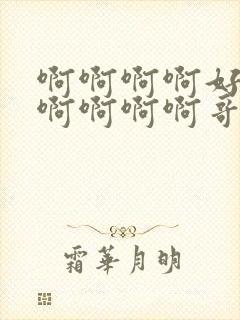 啊啊啊啊好
啊啊啊啊哥
霜華月明